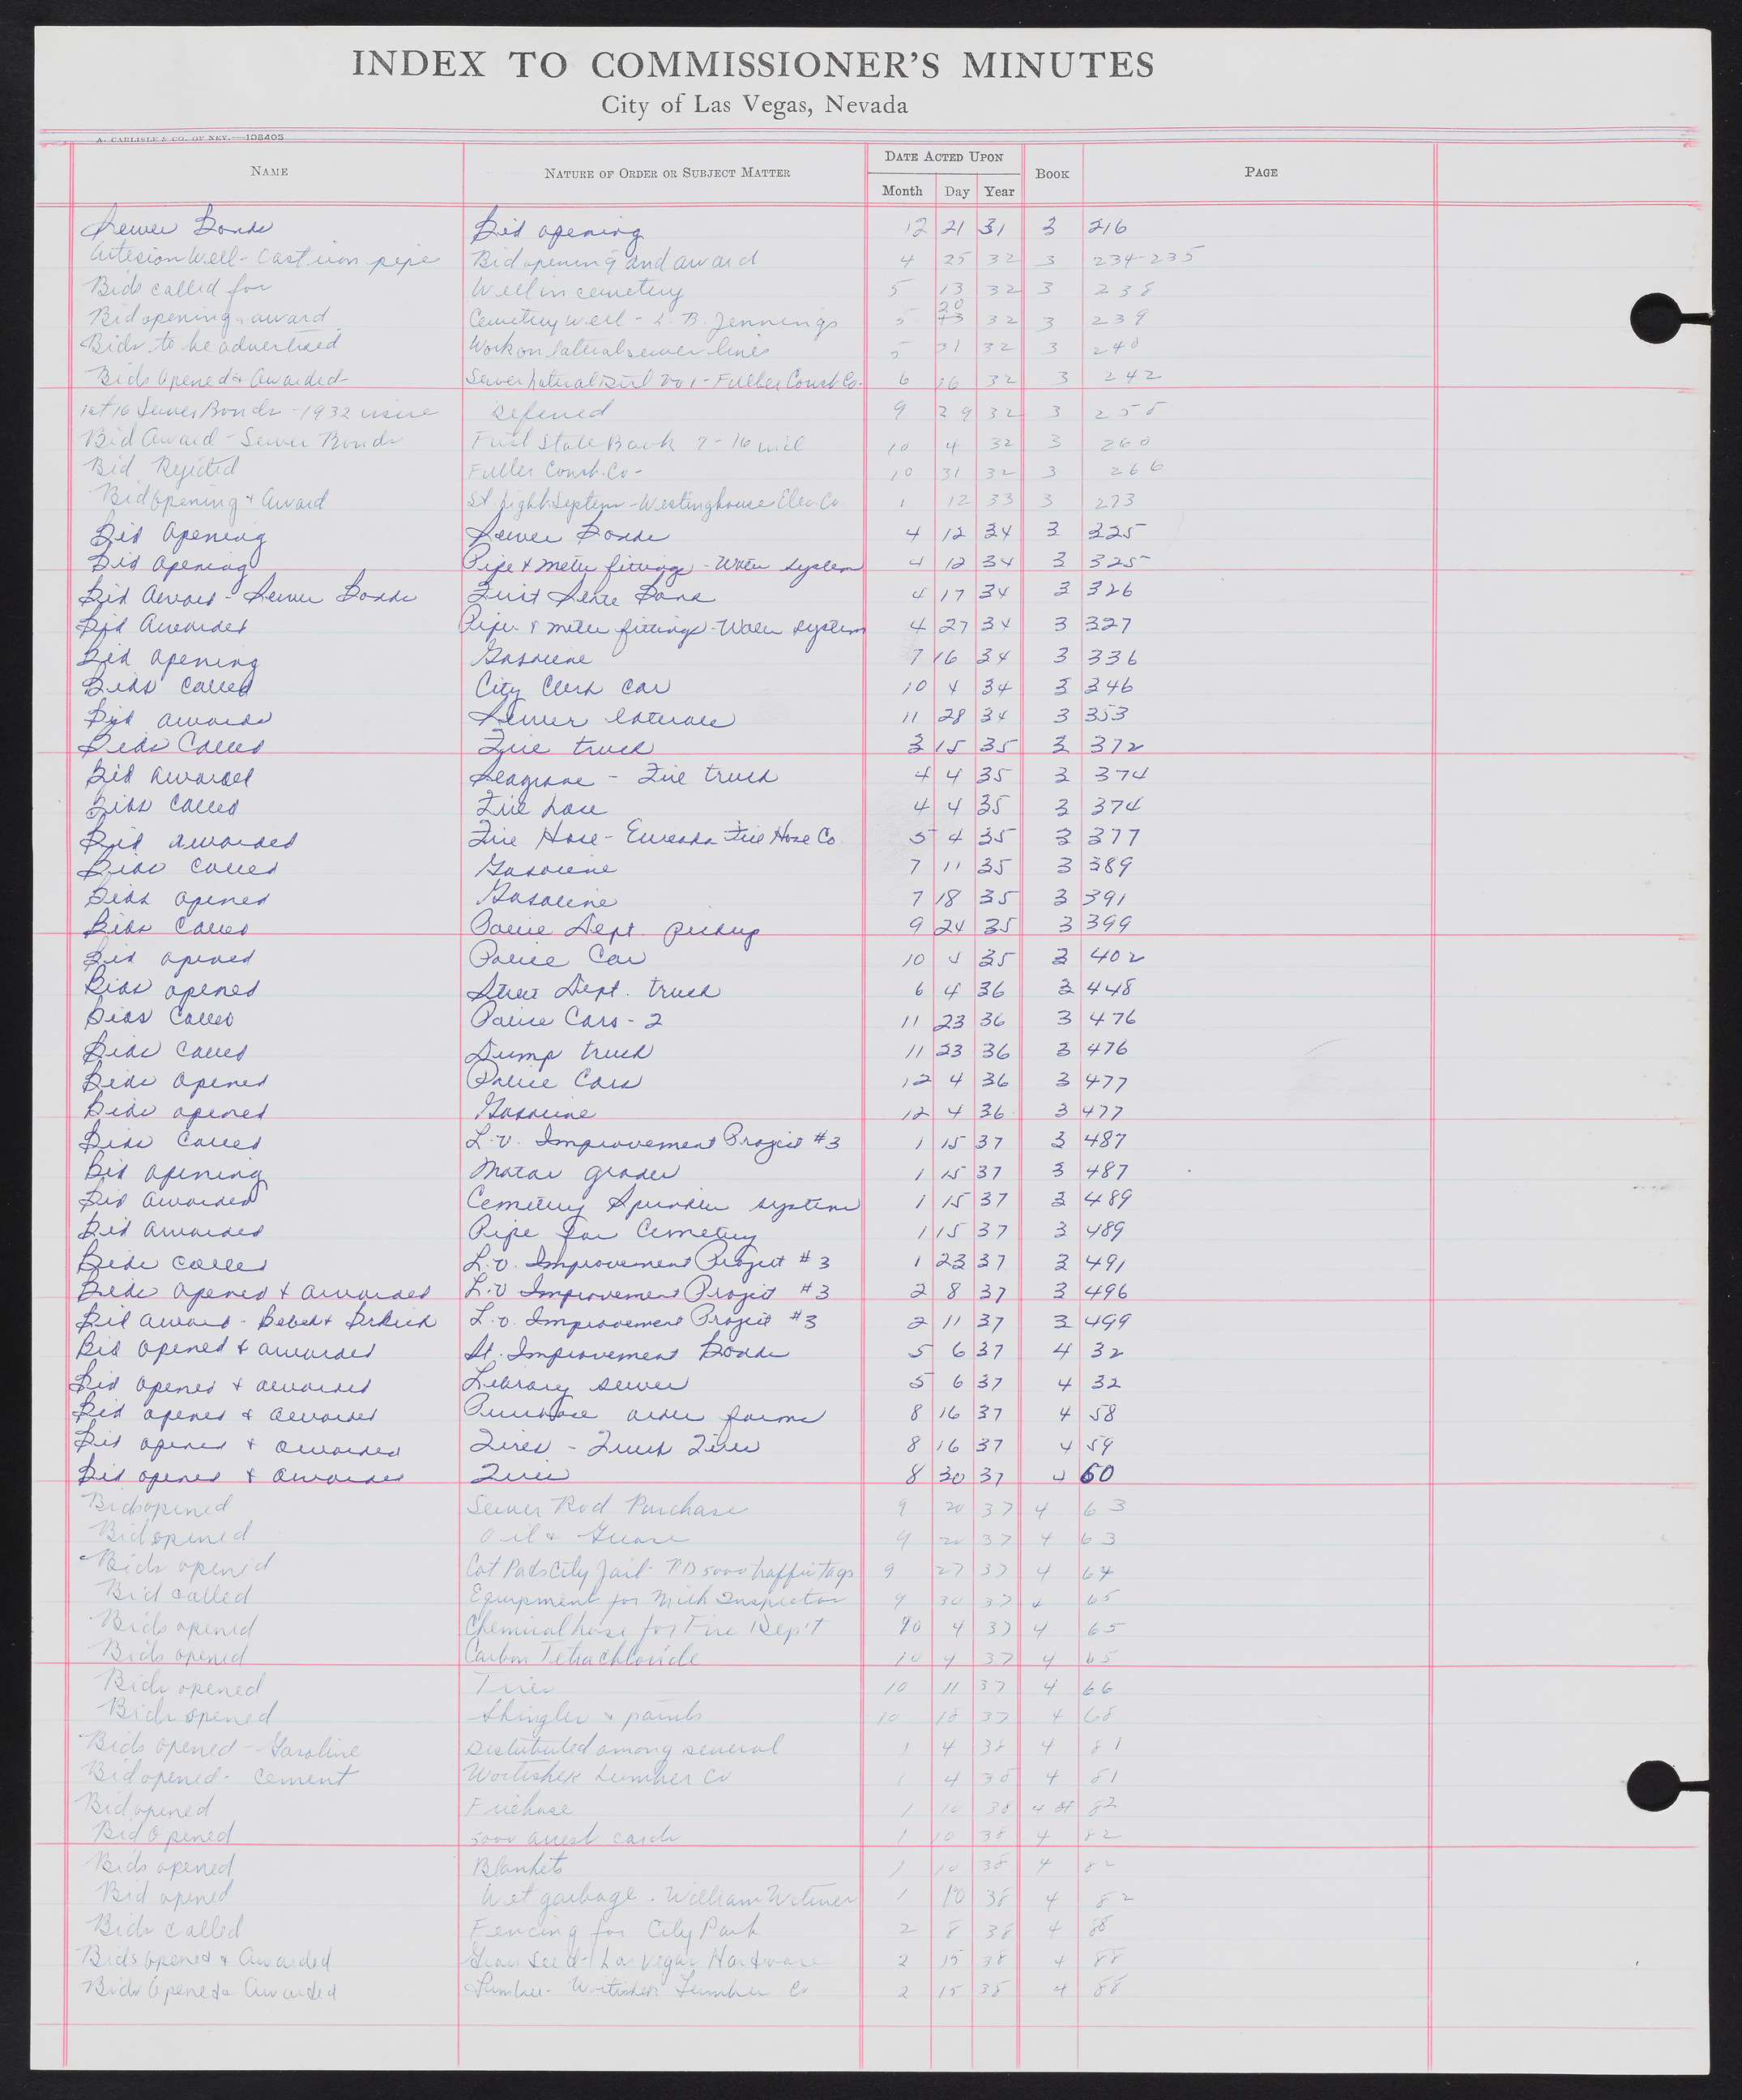 INDEX TO COMMISSIONER'S MINUTES
City of Las Vegas, Nevada
A. CARLISLE & CO. OF NEV.—108405
NAME NATURE OF ORDER OR SUBJECT MATTER DATE ACTED UPON BOOK PAGE
Month Day Year
Sewer Bonds Bid opening 12 21 31 3 216
Artesion Well - Cast iron pipe Bid opening and award 4 25 32 3 234-235
Bids called for Well in cemetery 5 13 32 3 238
Bid opening & award Cemetery Well - L. B. Jennings 5 20 32 3 239
Bids to be advertised Work on lateral sewer lines 5 31 32 3 240
Bids Opened & Awarded Sewer Lateral Dist No 1 - Fuller Const Co. 6 16 32 3 242
1st 16 Sewer Bonds - 1932 issue Defered 9 29 32 3 255
Bid Award - Sewer Bonds First State Bank 7-16 mil 10 4 32 3 260
Bid Rejected Fuller Const. Co - 10 31 32 3 266
Bid Opening & Award St Light System - Westinghouse Elec. Co. 1 12 33 3 273
Bid Opening Sewer Bonds 4 12 34 3 325
Bid Opening Pipe & meter fittings - Water system 4 12 34 3 325
Bid Award - Sewer Bonds First State Bank 4 17 34 3 326
Bid Awarded Pipe & meter fittings - Water system 4 27 34 3 327
Bid opening Gasoline 7 16 34 3 336
Bids Called City Clerk Car 10 4 34 3 346
Bid awards Sewer laterals 11 28 34 3 353
Bids Called Fire truck 3 15 35 3 372
Bid awarded Seagrave - Fire truck 4 4 35 3 374
Bids Called Fire hose 4 4 35 3 374
Bid awarded Fire Hose - Eureka Fire Hose Co. 5 4 35 3 377
Bids Called Gasoline 7 11 35 3 389
Bids opened Gasoline 7 18 35 3 391
Bids Called Police Dept. pickup 9 24 35 3 399
Bid opened Police Car 10 4 35 3 402
Bids opened Street Dept. truck 6 4 36 3 448
Bids Called Police Cars - 2 11 23 36 3 476
Bids Called Dump truck 11 23 36 3 476
Bids opened Police Cars 12 4 36 3 477
Bids opened Gasoline 12 4 36 3 477
Bids Called L.V. Improvement Project #3 1 15 37 3 487
Bid opening Motor grader 1 15 37 3 487
Bid Awarded Cemetery Sprinkler system 1 15 37 3 489
Bid Awarded Pipe for Cemetery 1 15 37 3 489
Bids called L.V. Improvement Project #3 1 23 37 3 491
Bids opened & awarded L.V Improvement Project #3 2 8 37 3 496
Bid Award - L.V. Improvement Project #3 2 11 37 3 499
Bid opened & awarded St. Improvement Bonds 5 6 37 4 32
Bid opened & awarded Library sewer 5 6 37 4 32
Bid opened & awarded Purchase order forms 8 16 37 4 58
Bid opened & awarded Tires - Truck Tires 8 16 37 4 59
Bid opened & awarded Tires 8 30 37 4 60
Bids opened Sewer Rod Purchase 9 20 37 4 63
Bid opened Oil & Grease 9 20 37 4 63
Bids opened Cot Pads City Jail - PD 5000 traffic tags 9 27 37 4 64
Bid called Equipment for Milk Inspector 9 30 37 4 65
Bids opened Chemical hose for Fire Dep't 10 4 37 4 65
Bids opened Carbon Tetrachloride 10 4 37 4 65
Bids opened Tires 10 11 37 4 66
Bids opened Shingles & paints 10 18 37 4 68
Bids opened - Gasoline Distributed among several 1 4 38 4 81
Bid opened - Cement Lumber Co 1 4 38 4 81
Bid opened Firehose 1 10 38 4 82
Bid Opened 5000 arrest cards 1 10 38 4 82
Bids opened Blankets 1 10 38 4 82
Bid opened Wet garbage - William 1 10 38 4 82
Bids called Fencing for City Park 2 8 38 4 88
Bids Opened & Awarded Grass Seed - Las Vegas Hardware 2 15 38 4 88
Bids Opened & Awarded Lumber - Lumber Co 2 15 38 4 88